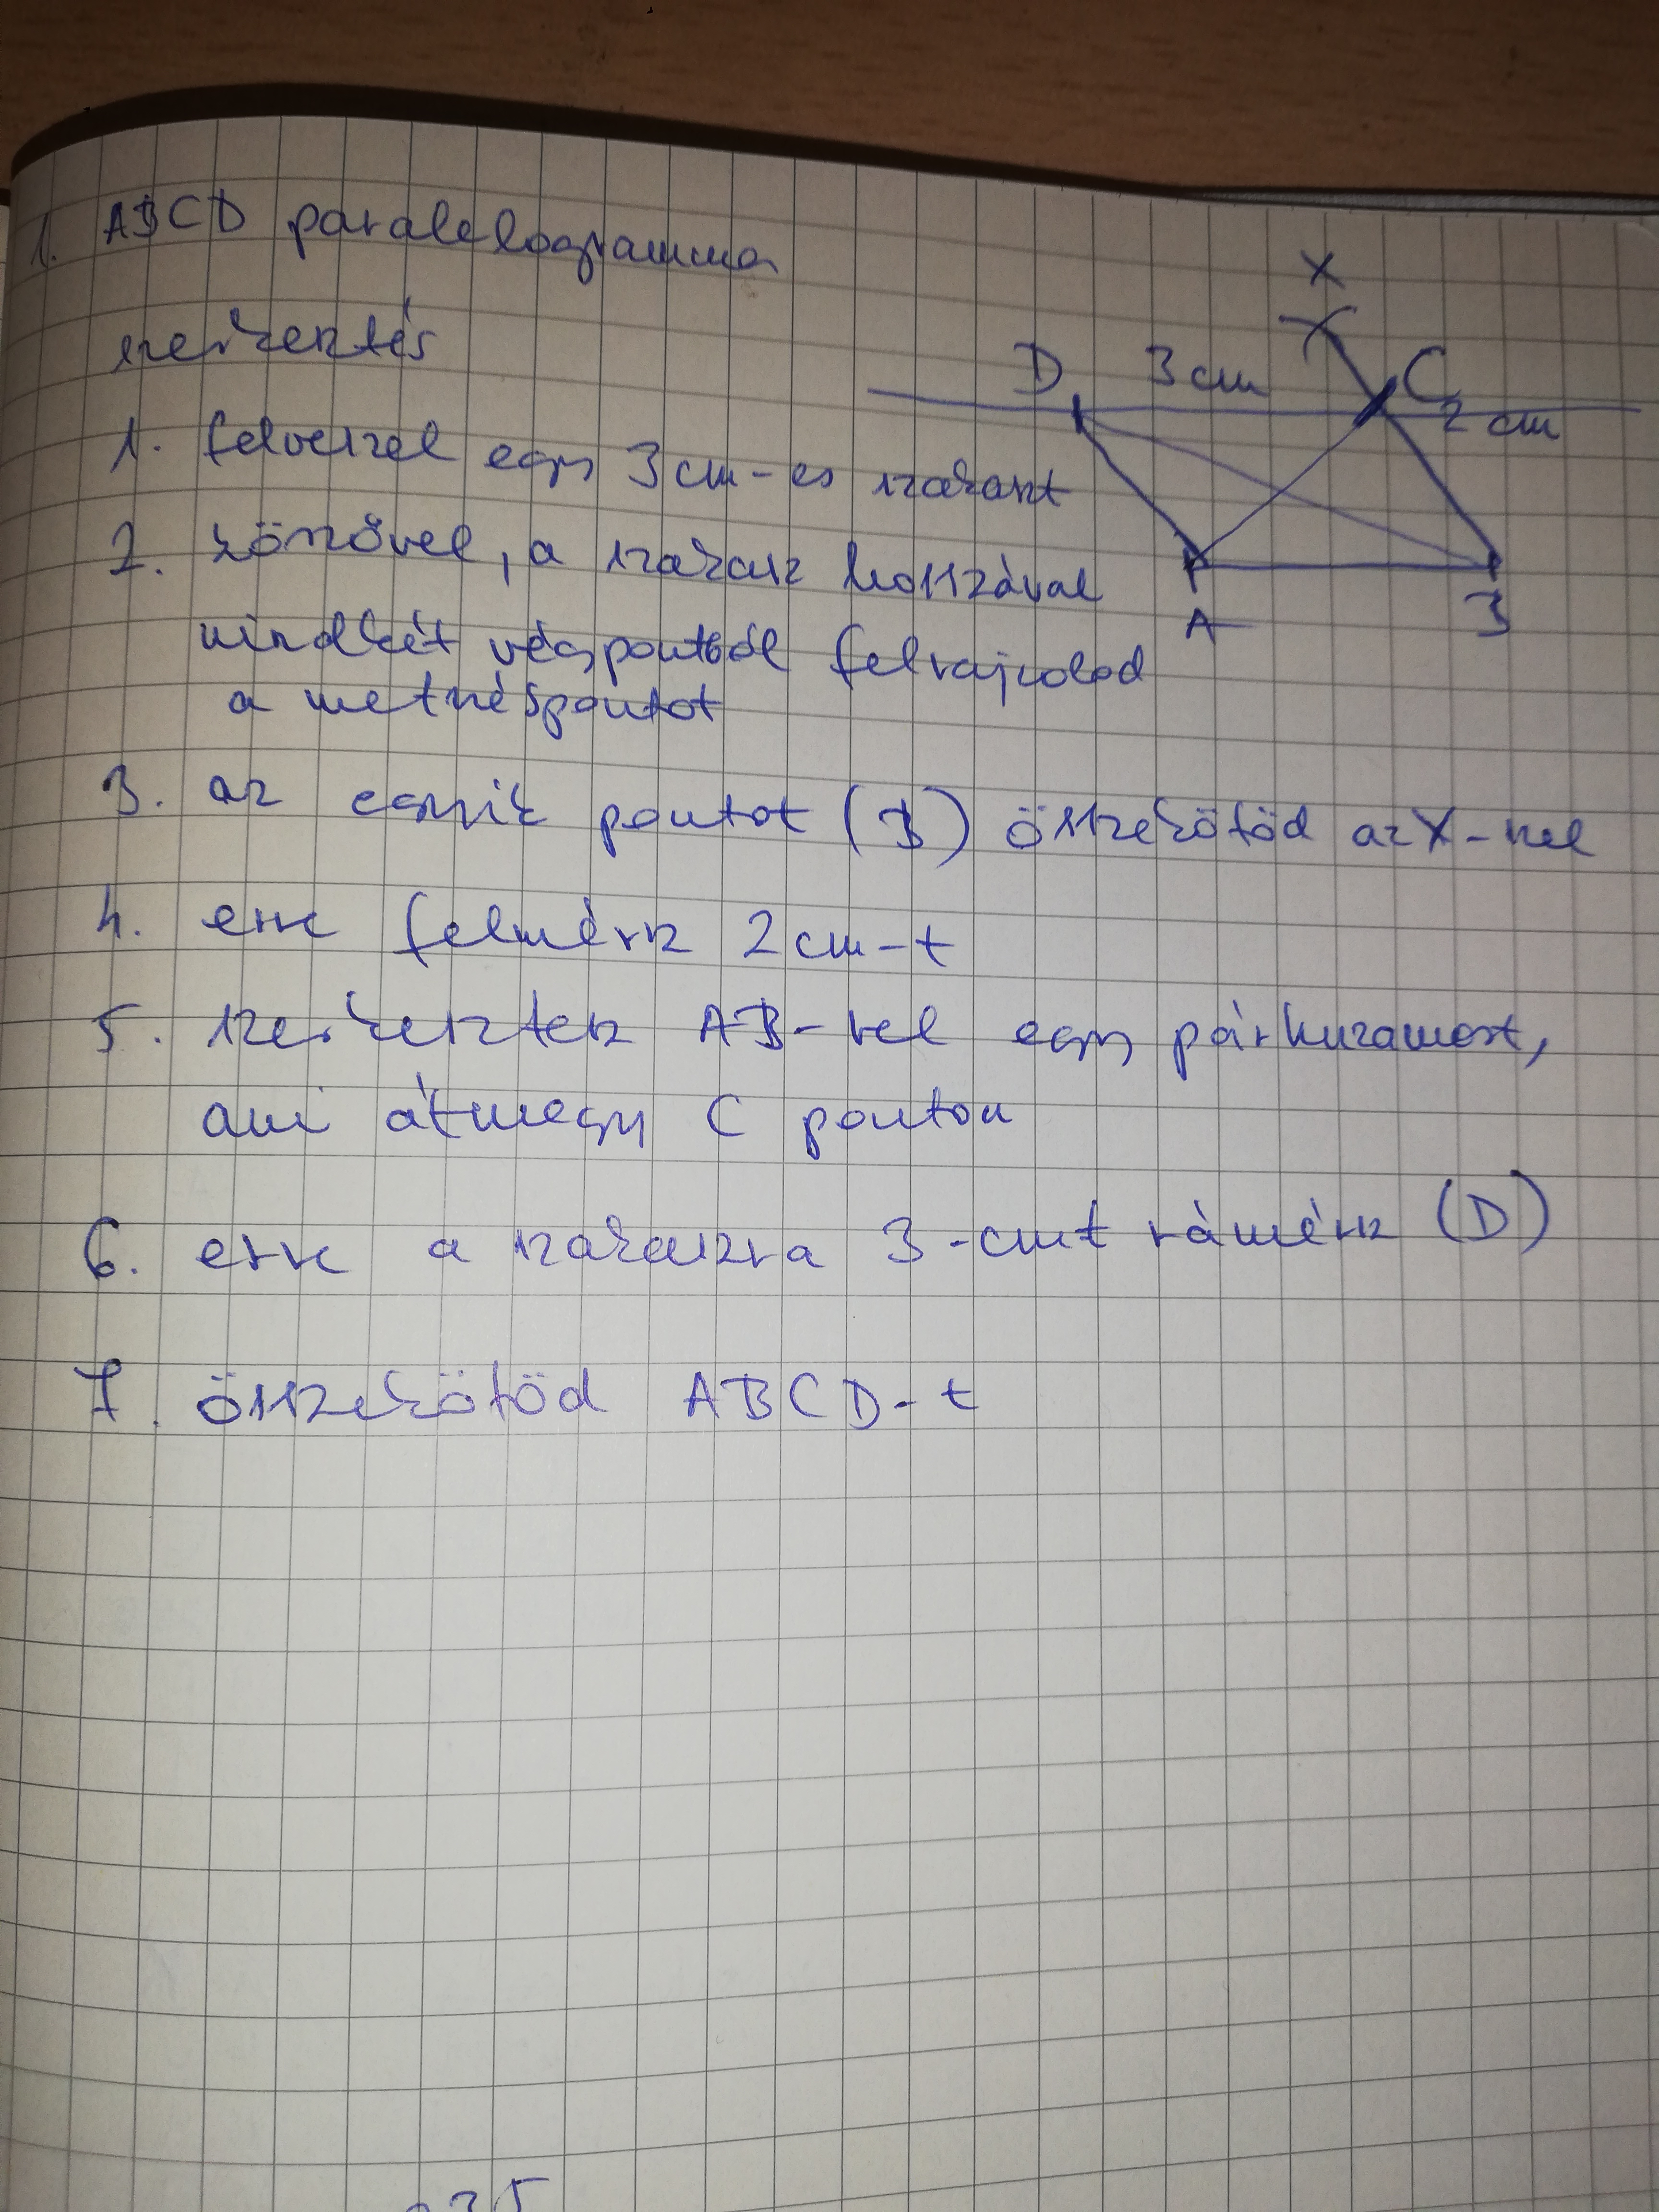 1. ABCD paralelogramma
szerkesztés
1. felveszel egy 3cm-es szakaszt
2. körzővel, a szakasz hosszával
mindkét végpontból felrajzolod
a metszéspontot
3. az egyik pontot (B) összekötöd az X-szel
4. erre felmérsz 2cm-t
5. szerkesztesz AB-vel egy párhuzamost,
ami átmegy C ponton
6. erre a szakaszra 3-cmt rámérsz (D)
7. összekötöd ABCD-t
X
D 3cm C
2 cm
A B